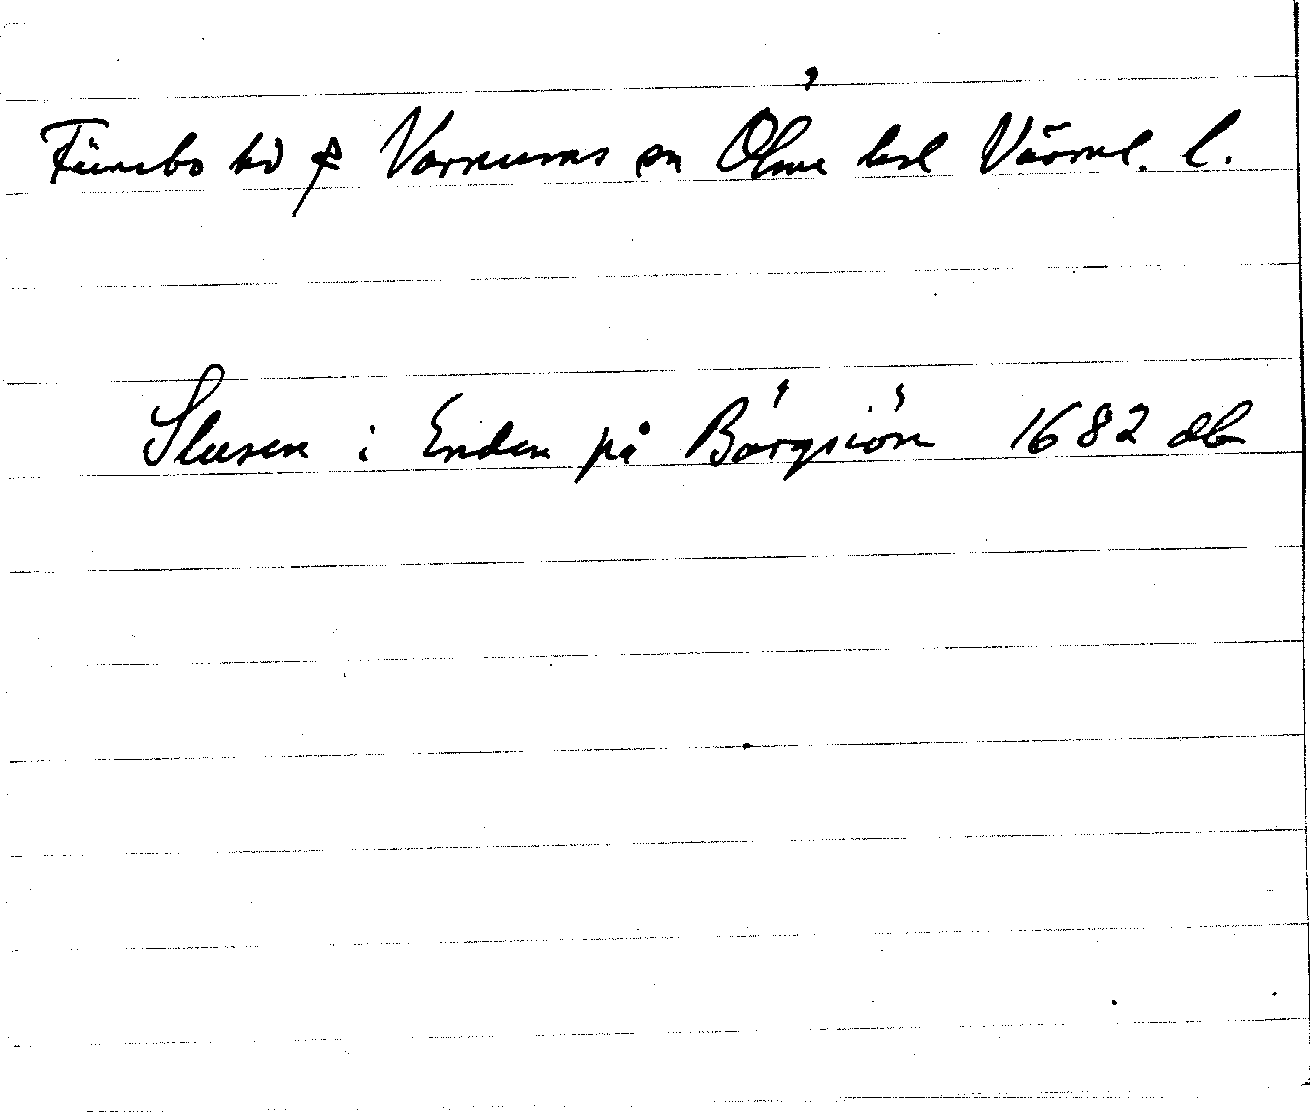 Fümbo hd f Varnums sn Ölme hd Värml. l.
Slusen i Enden på Bärgsiön 1682 db